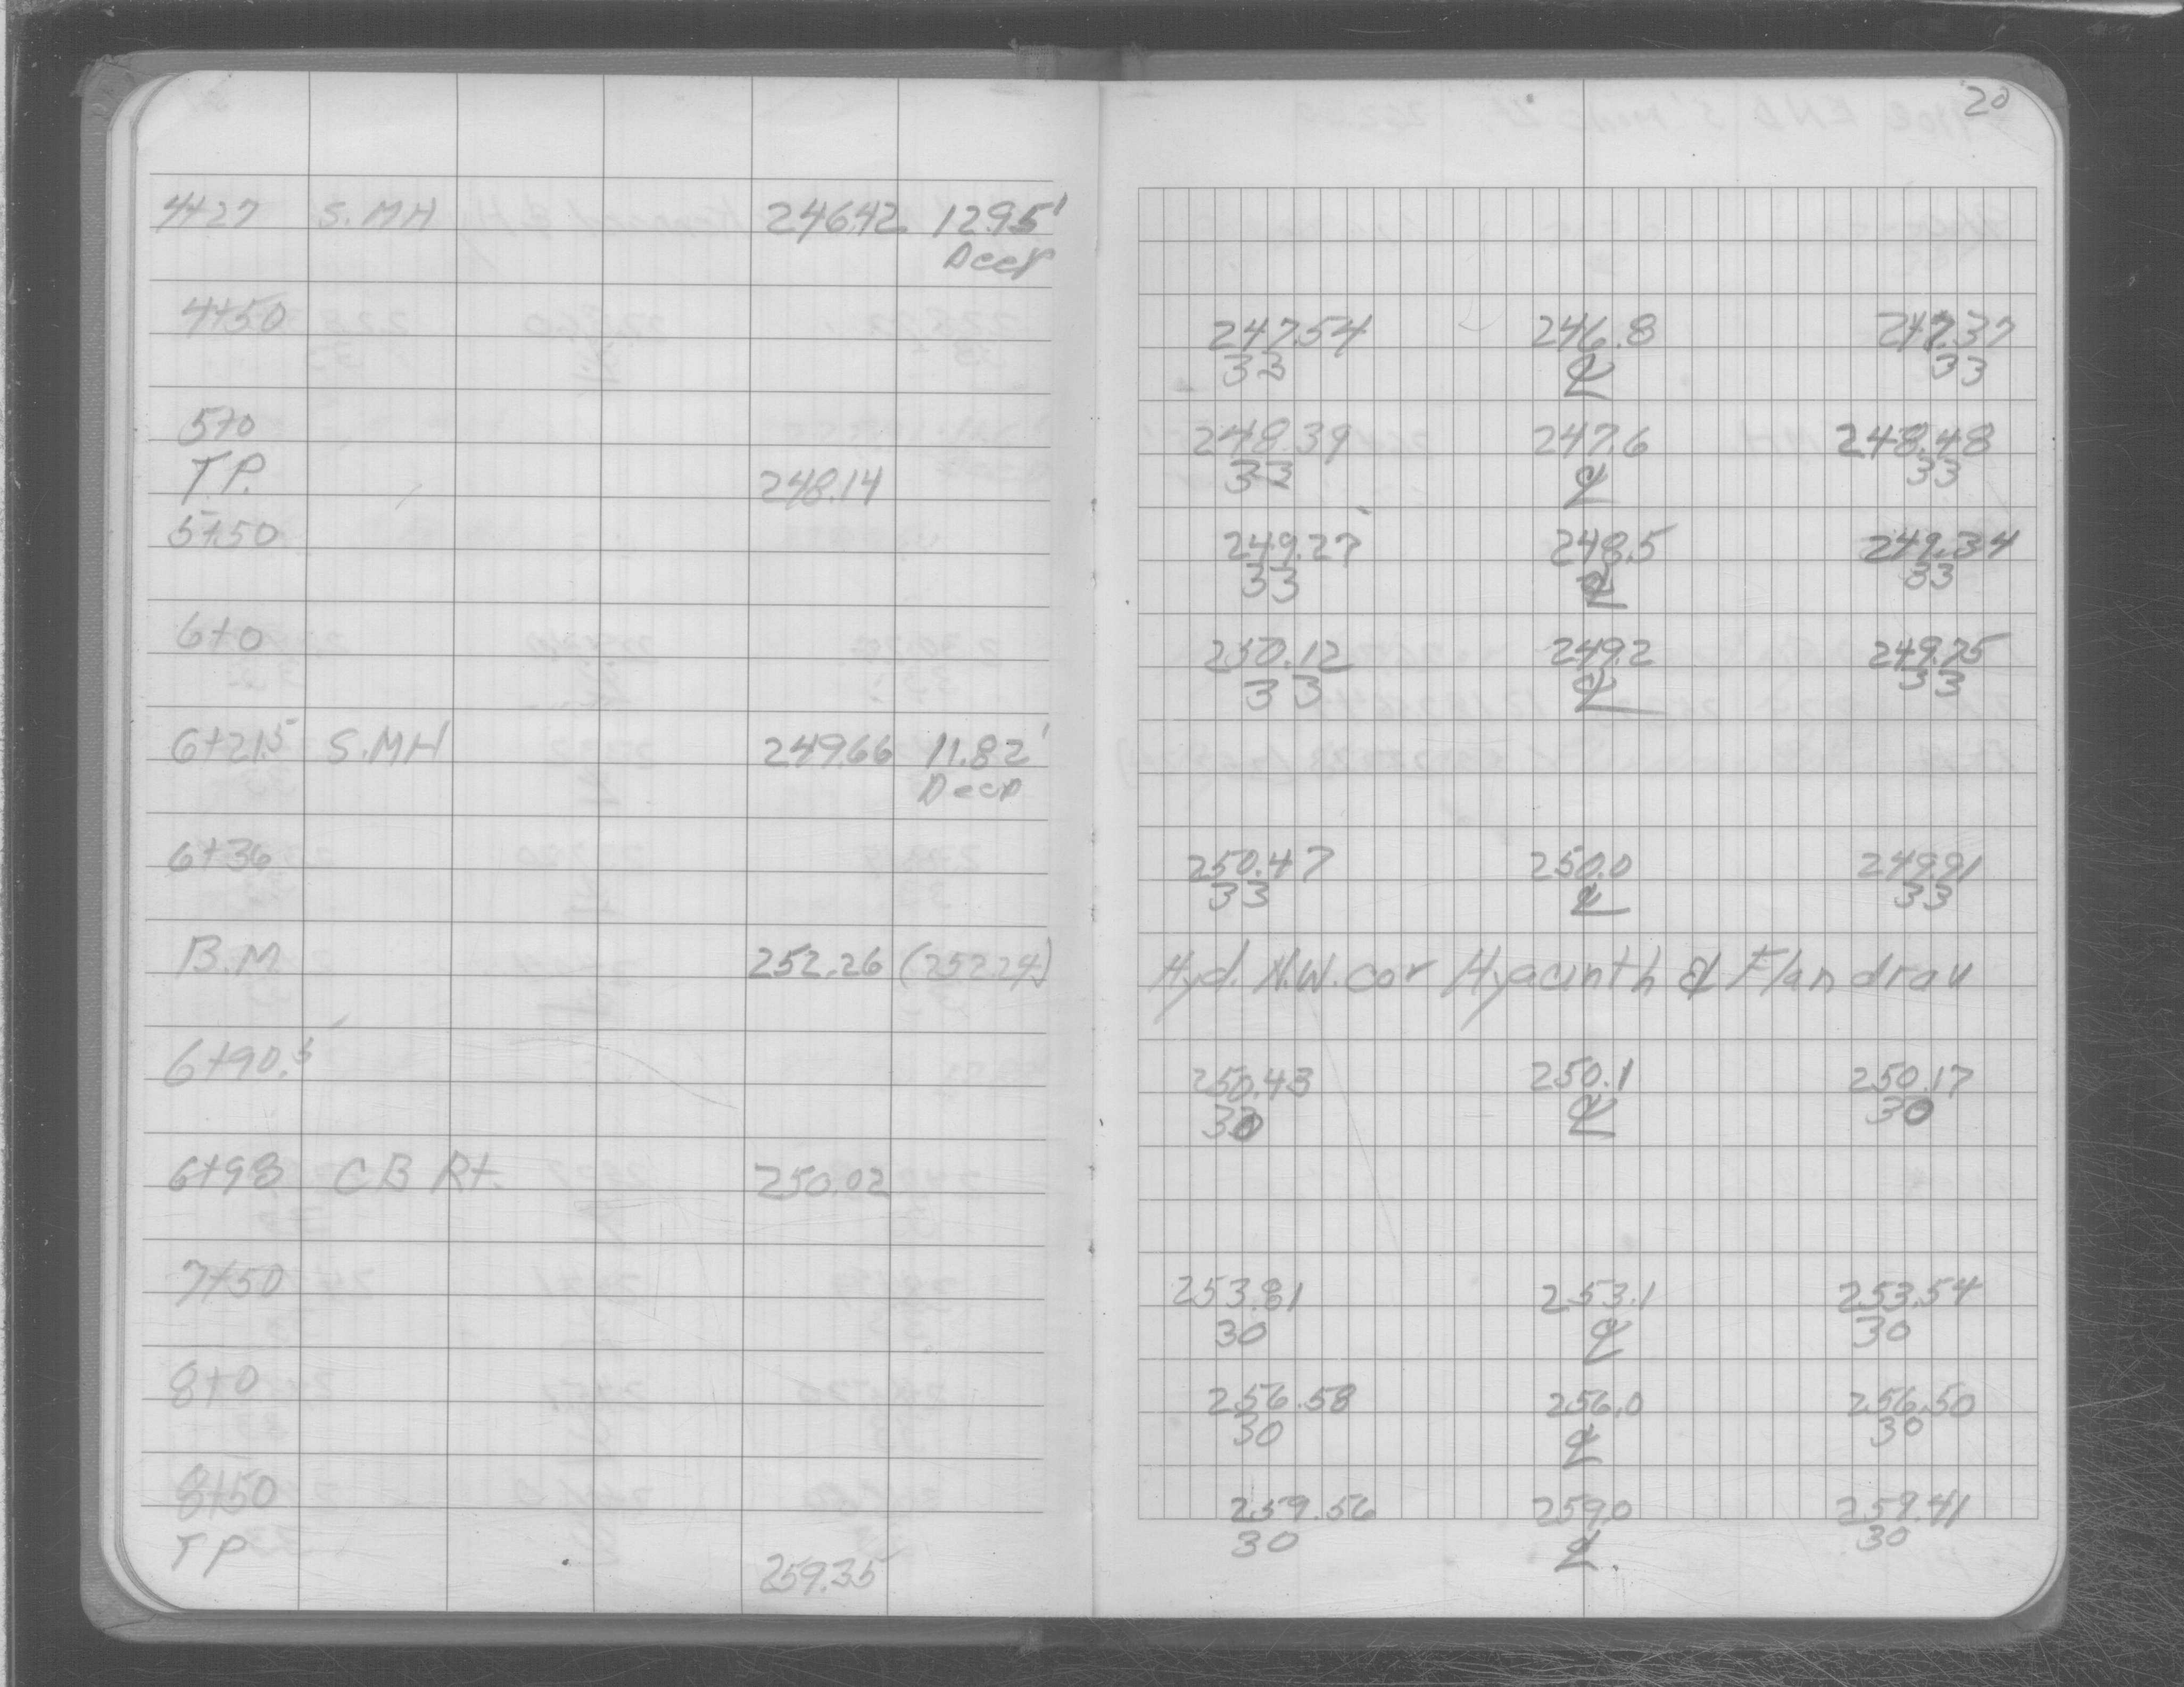 20
4+27 S.MH 246.42 12.95'
Deep
4+50 247.54 246.8 247.37
33 ℄ 33
5+0 248.39 247.6 248.48
33 ℄ 33
T.P. 248.14
5+50 249.27 248.5 249.34
33 ℄ 33
6+0 250.12 249.2 249.75
33 ℄ 33
6+21.5 S.MH 249.66 11.82'
Deep
6+36 250.47 250.0 249.91
33 ℄ 33
B.M 252.26 (252.24) Hyd. N.W. cor Hyacinth & Flandrau
6+90.5 250.43 250.1 250.17
30 ℄ 30
6+98 CB Rt. 250.02
7+50 253.81 253.1 253.54
30 ℄ 30
8+0 256.58 256.0 256.50
30 ℄ 30
8+50 259.56 259.0 259.41
30 ℄ 30
T P 259.35